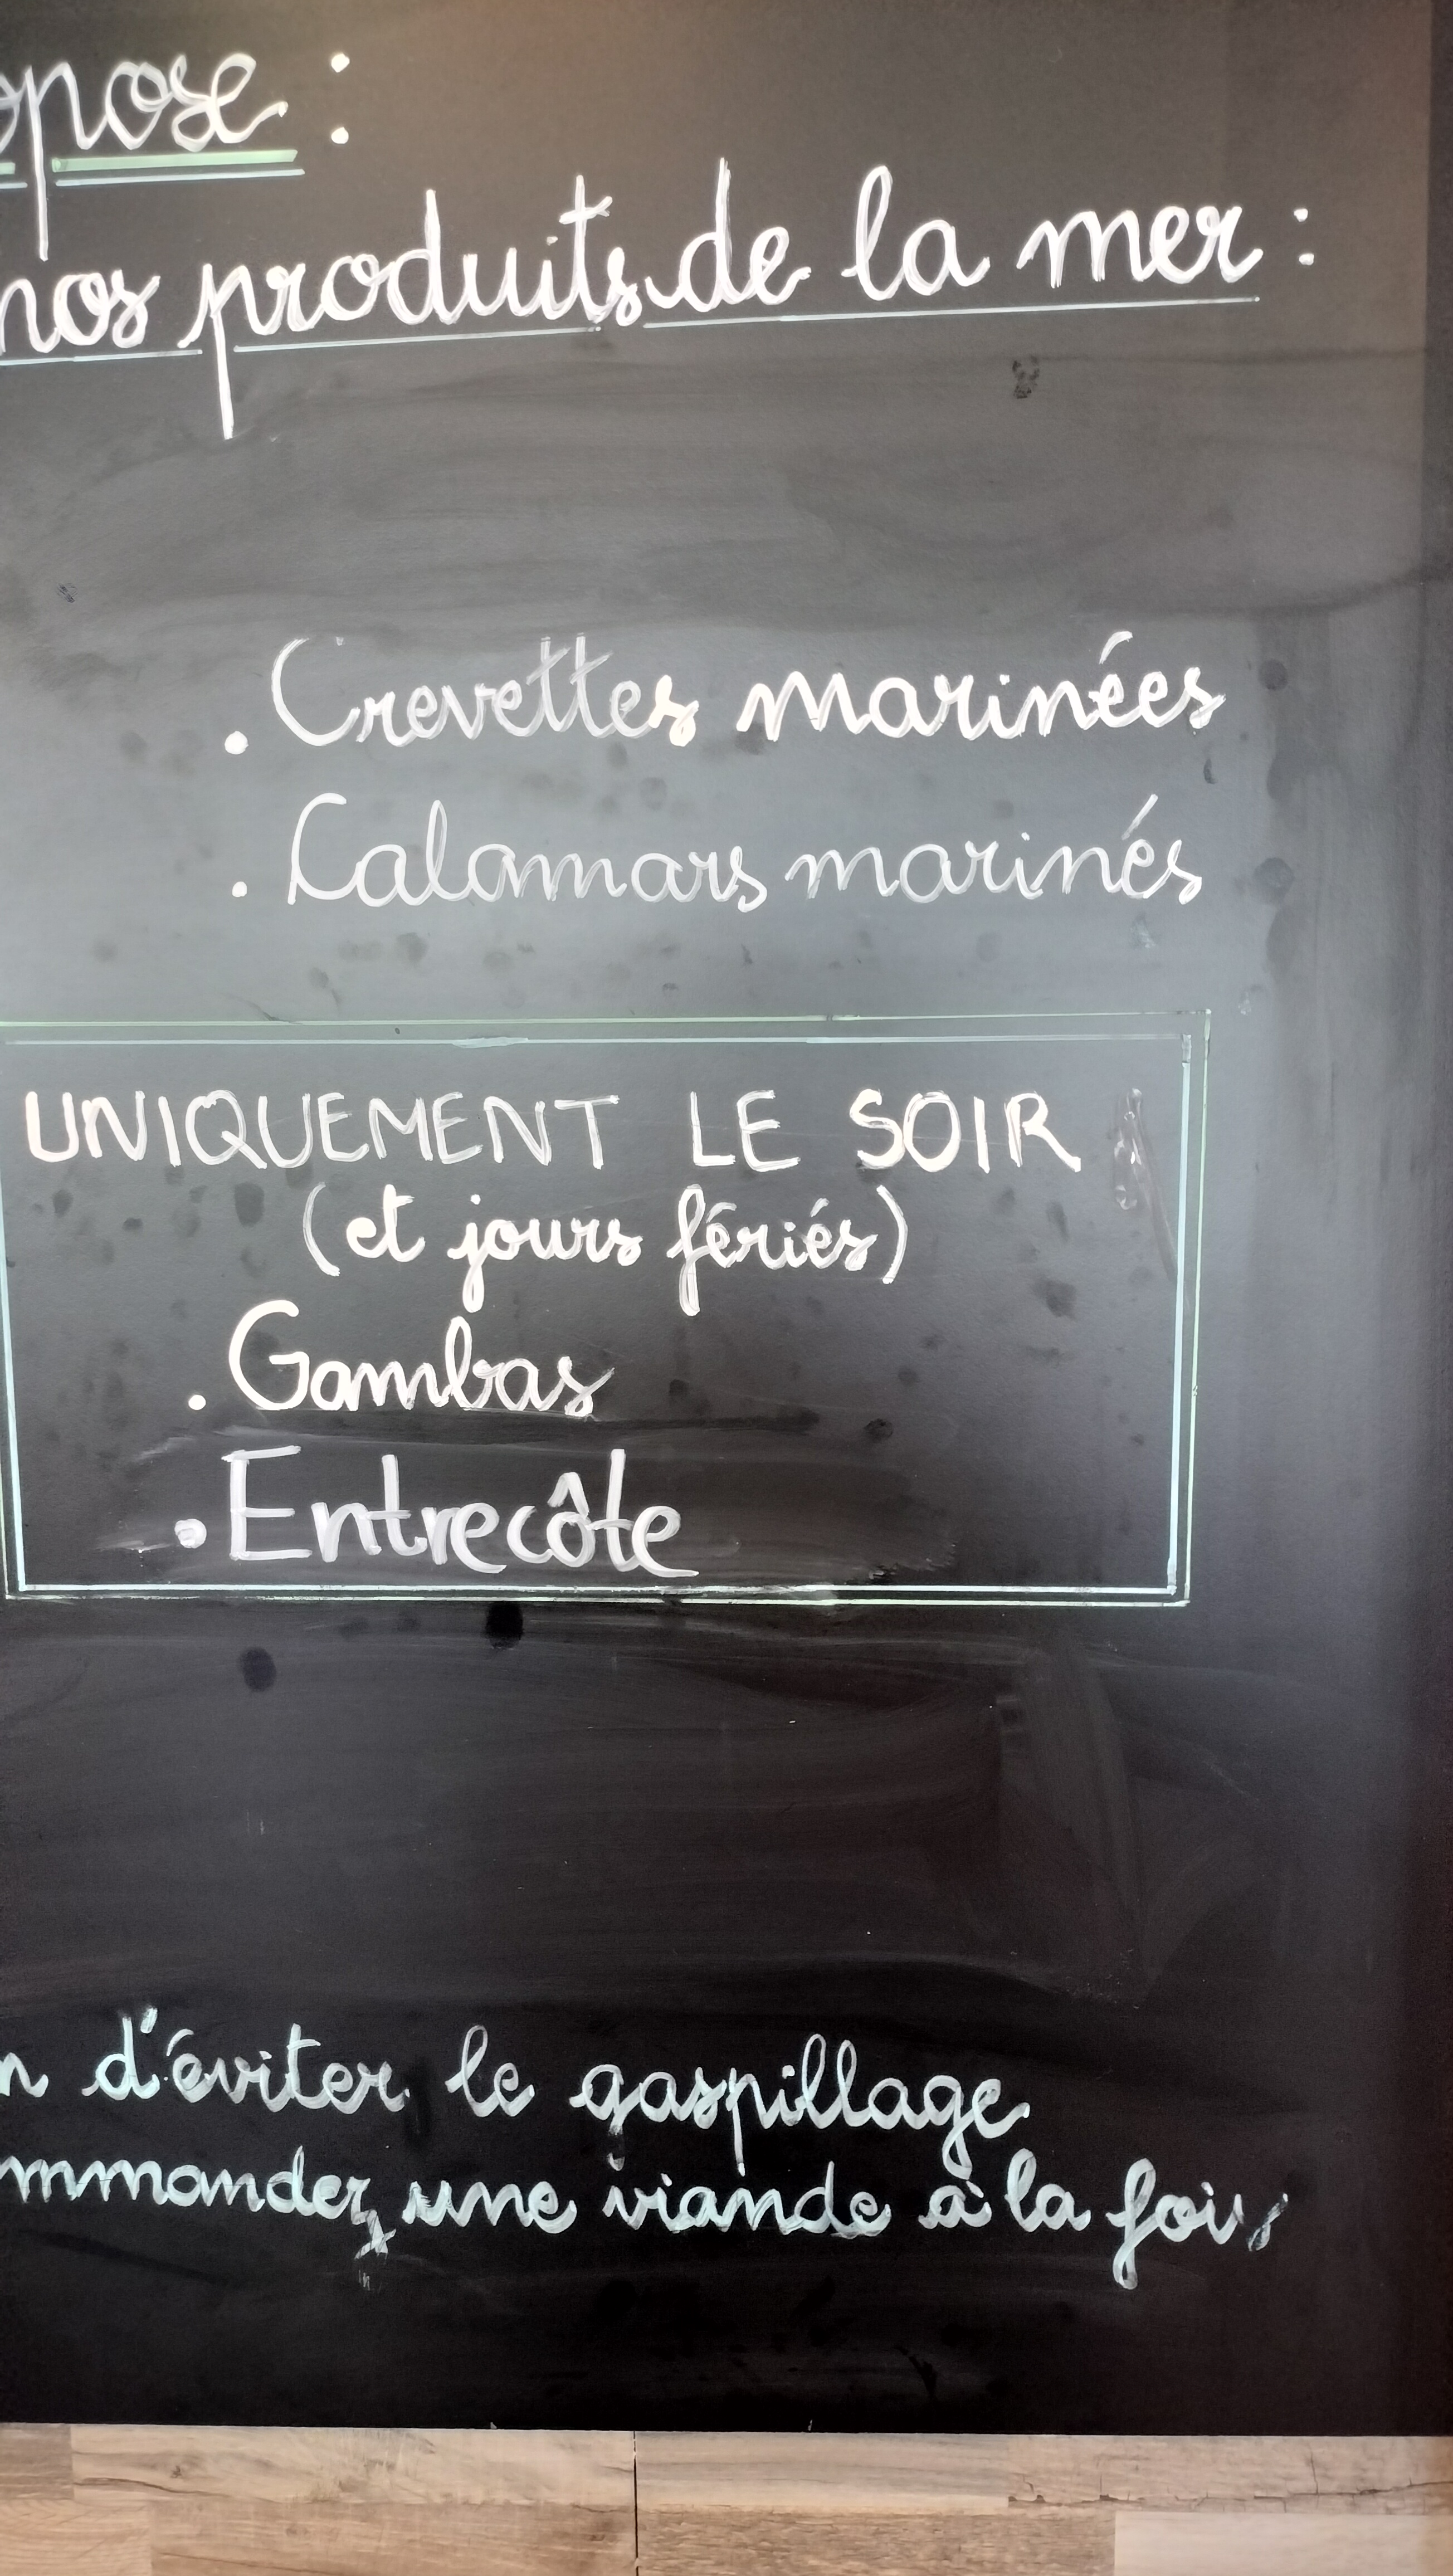 opose :
nos produits de la mer :
. Crevettes marinées
. Calamars marinés
UNIQUEMENT LE SOIR
(et jours fériés)
. Gambas
. Entrecôte
n d'éviter le gaspillage
mmandez une viande à la fois